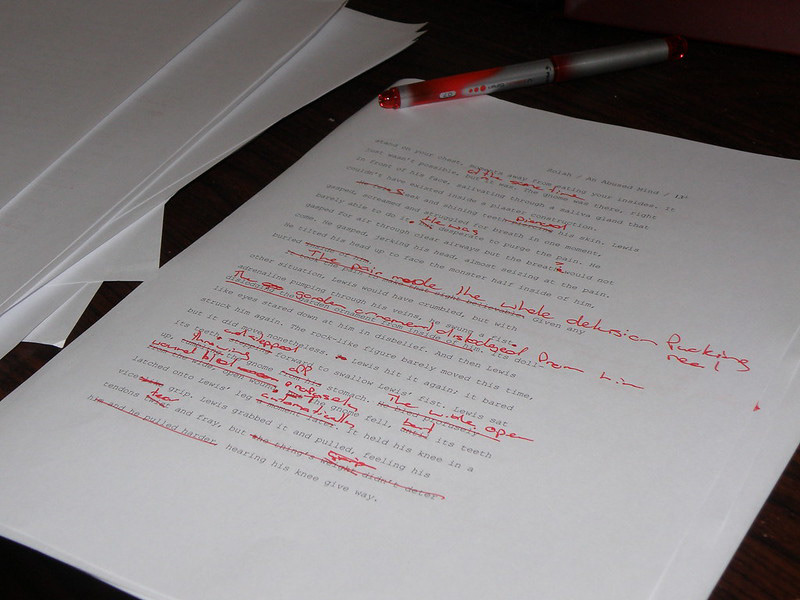 Joiah / An Abused Mind / 13
stand on your chest, away from eating your insides. It
just wasn't possible, but it was. The gnome was there, right
at the same time
in front of his face, salivating through a saliva gland that
couldn't have existed inside a plaster construction.
and shining teeth pierced his skin. Lewis
gasped, screamed and struggled to breath in one moment,
barely able to do it. He was desperate to purge the pain. He
gasped for air through clear airways but the breath would not
come. He gasped, jerking his head, almost seizing at the pain.
He tilted his head up to face the monster half inside of him,
buried inside of
The pain made the whole delusion fucking
real
Given any
other situation, Lewis would have crumbled, but with
adrenaline pumping through his veins, he swung a fist
The garden ornament dislodged from him
dislodging the garden ornament from inside of him. Its doll-
like eyes stared down at him in disbelief. And then Lewis
struck him again. The rock-like figure barely moved this time,
but it did move nonetheless. Lewis hit it again; it bared
its teeth, forward to swallow Lewis' fist. Lewis sat
up, throwing the gnome off stomach. He bled profusely
The wide open
wound bled profusely
The gnome fell, but its teeth
automatically
latched onto Lewis' leg. It held his knee in a
vice grip. Lewis grabbed it and pulled, feeling his
tendons tear and fray, but the thing's weight didn't deter
his and he pulled harder. hearing his knee give way.